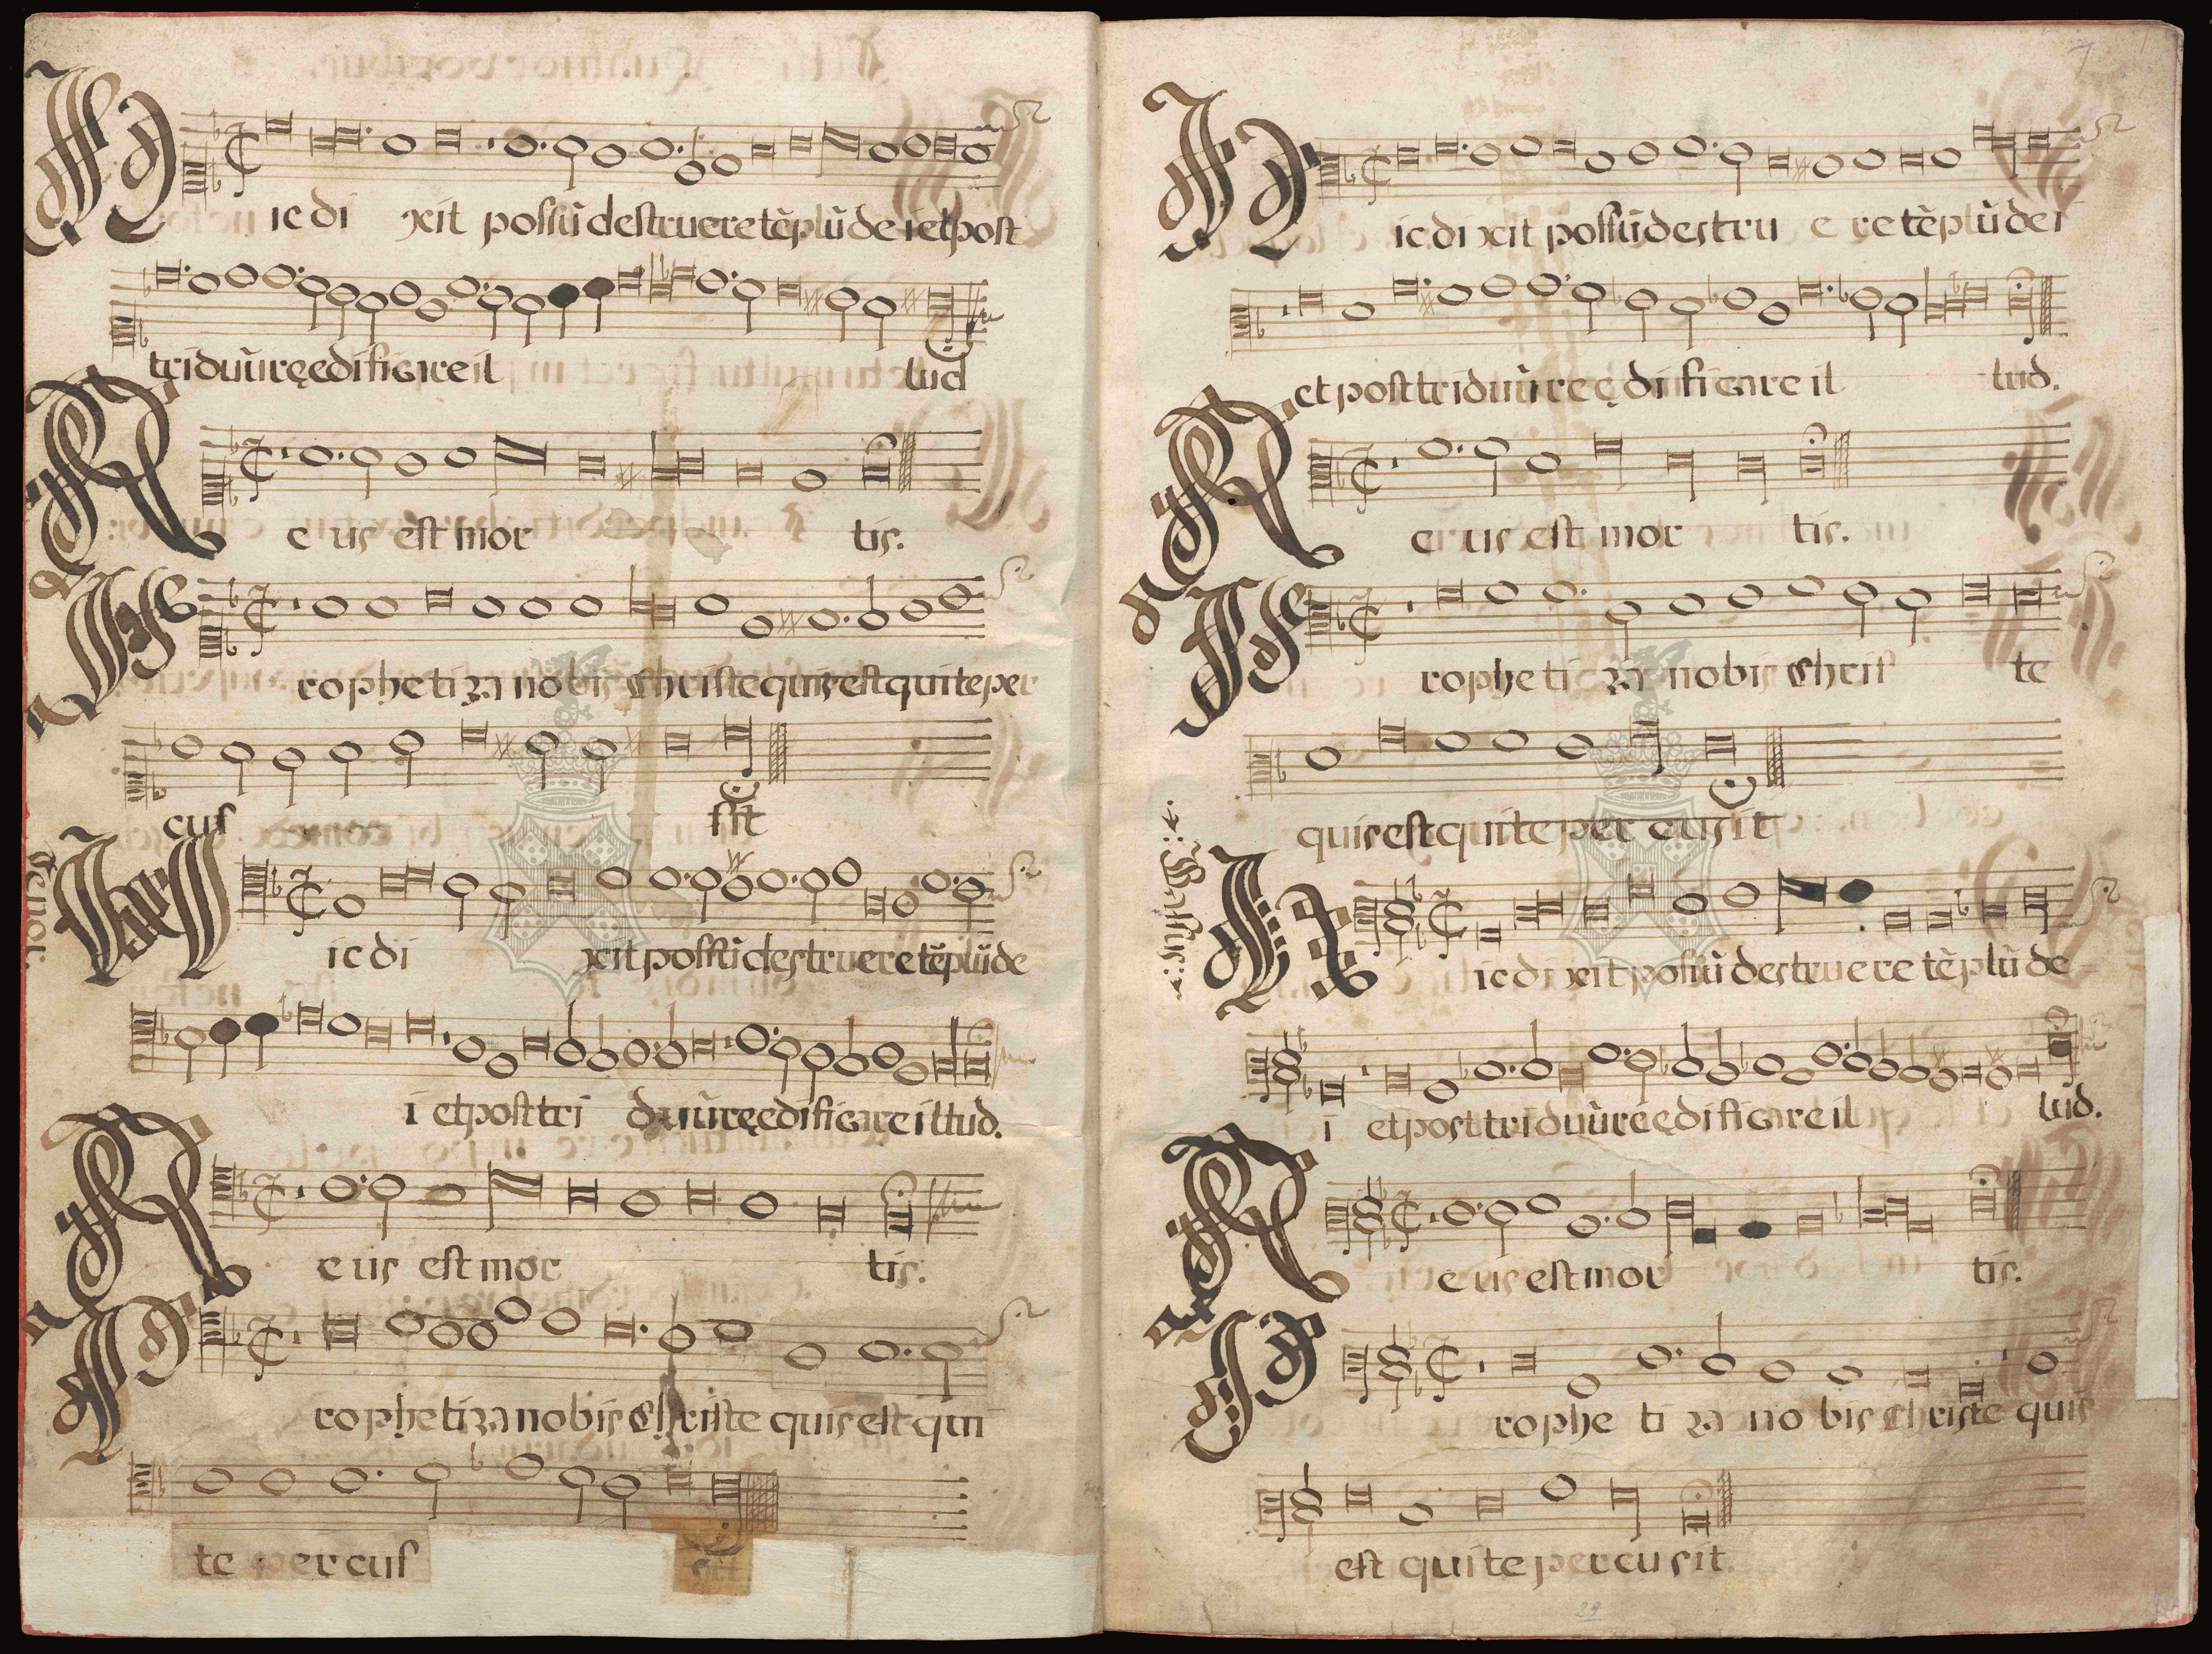 Hic di xit possū destruere tēplū dei et post
triduū reędificare il lud
Reus est mor tis.
Prophetiza nobis Christe quis est qui te per
cus sit
Tenor.
Hic di xit possū destruere tēplū de
i et post tri duū reędificare illud.
Reus est mor tis.
Prophetiza nobis Christe quis est qui
te per cus sit
7
Hic dixit possū destru e re tēplū dei
et post triduū reędificare il lud.
Reus est mor tis.
Prophetiza nobis Chris te
quis est qui te per cusit
Bassus
Hic dixit possū destruere tēplū de
i et post triduū reędificare il lud.
Reus est mor tis.
Prophe ti za no bis Christe quis
est qui te percusit.
29